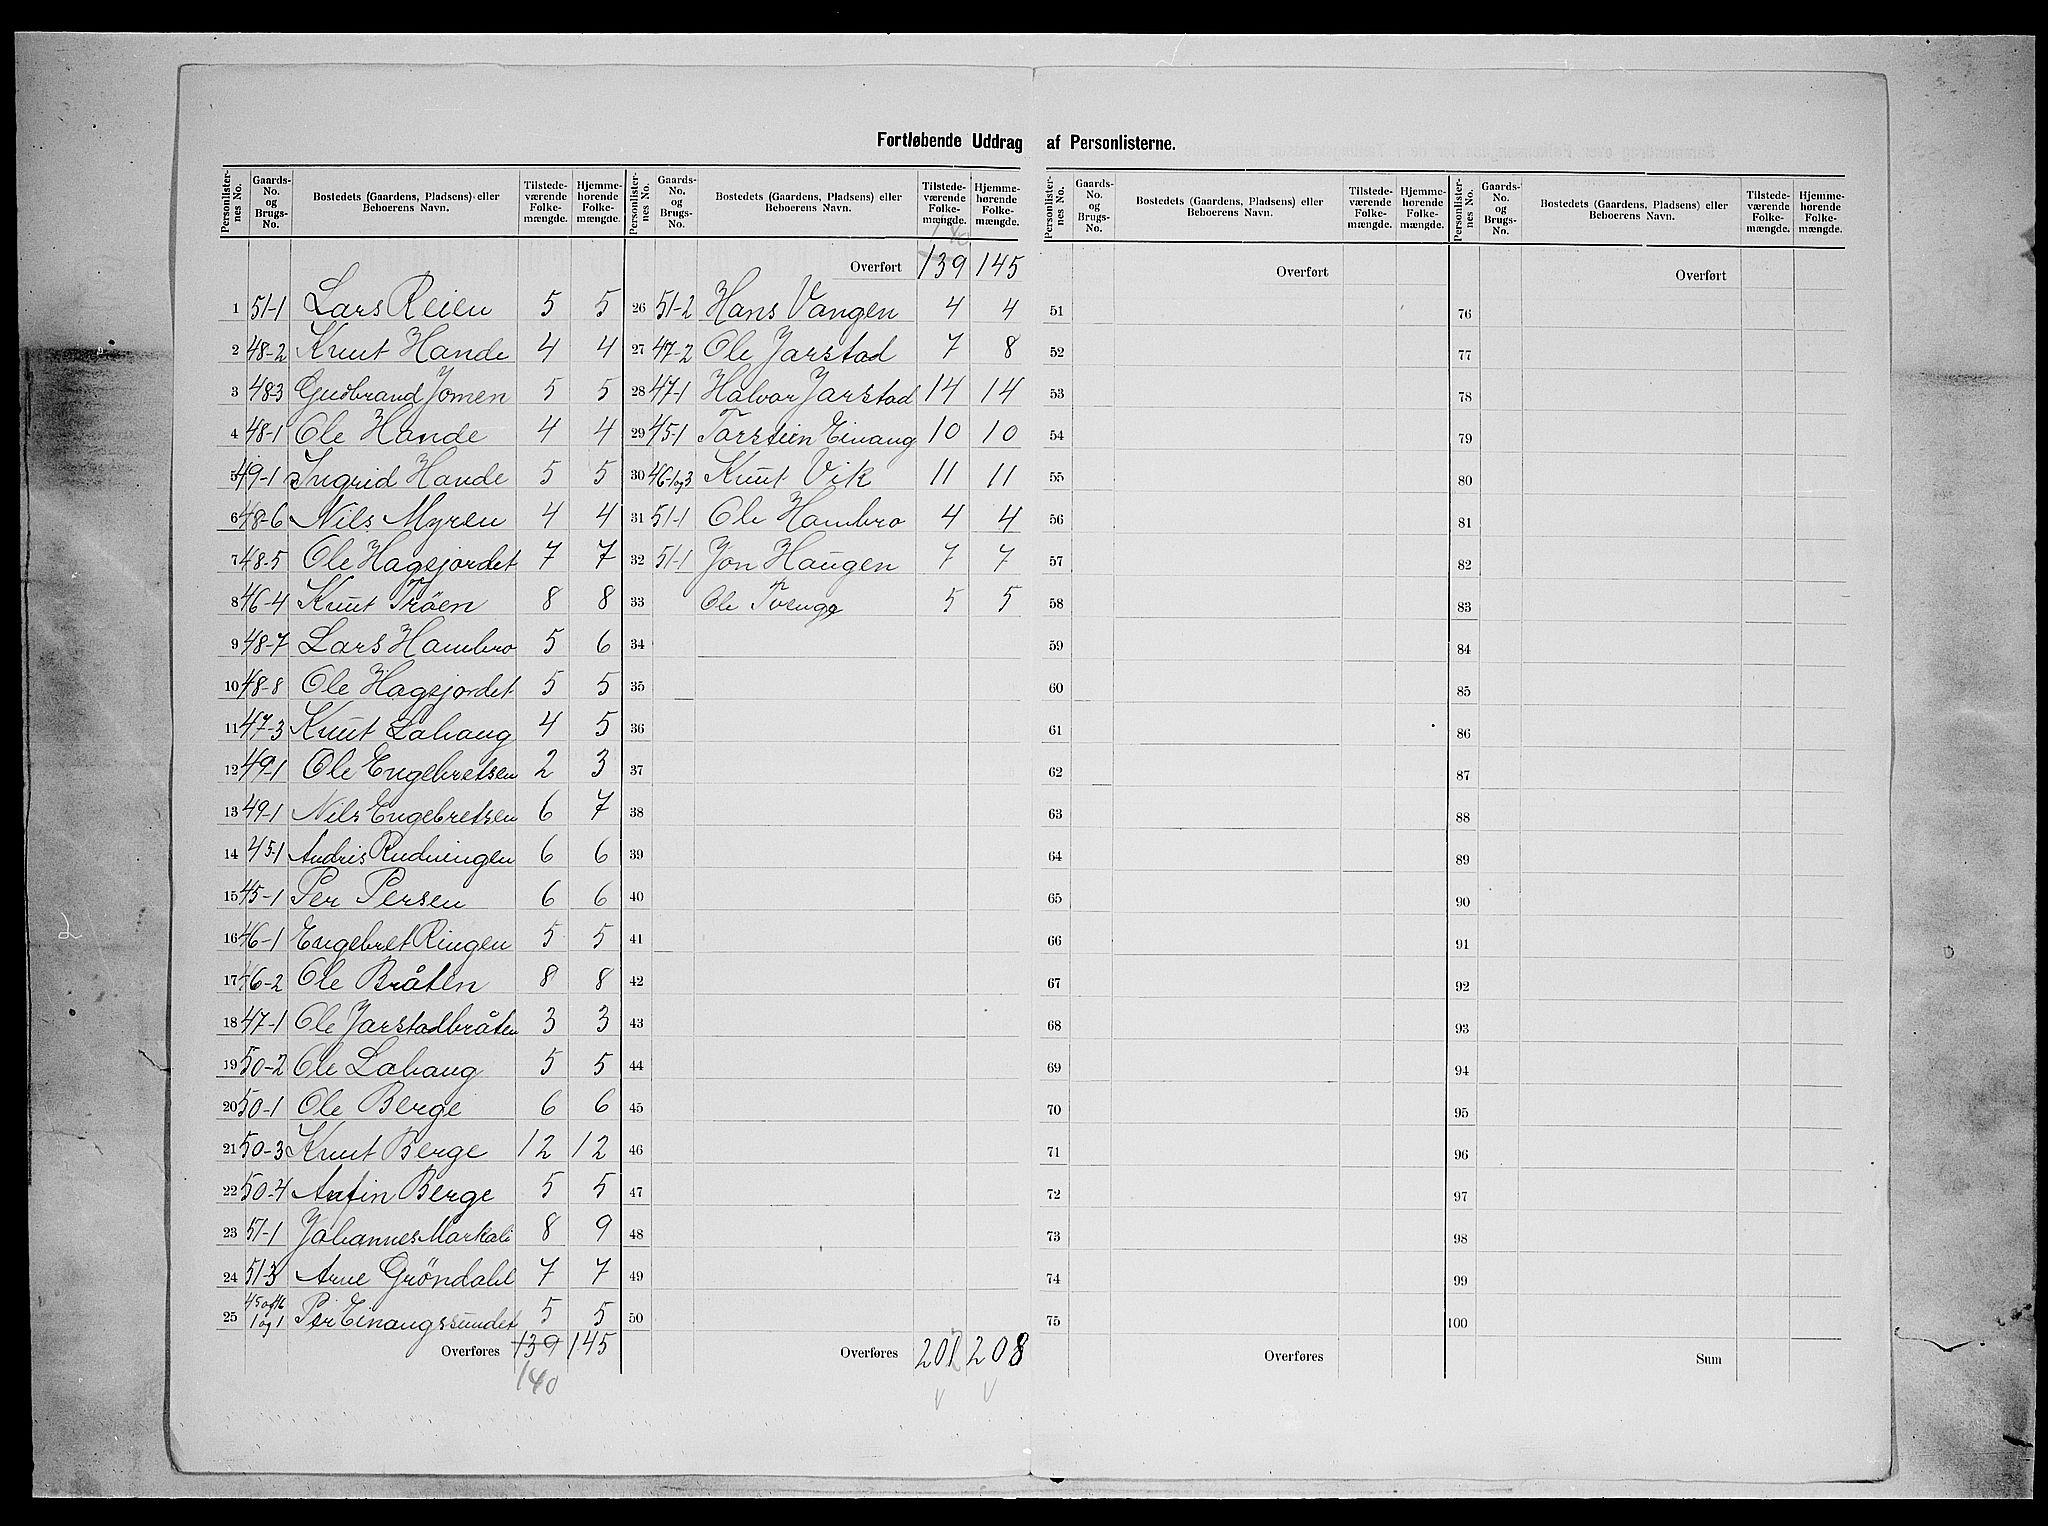 Fortløbende Uddrag af Personlisterne.
Personlister-nes No. | Gaards-No. og Brugs-No. | Bostedets (Gaardens, Pladsens) eller Beboerens Navn. | Tilstede-værende Folke-mængde. | Hjemme-hørende Folke-mængde.
1 51-1 Lars Reien 5 5
2 48-2 Knut Hande 4 4
3 48-3 Gudbrand Jomen 5 5
4 48-1 Ole Hande 4 4
5 49-1 Ingrid Hande 5 5
6 48-6 Nils Myren 4 4
7 48-5 Ole Hagejordet 7 7
8 46-4 Knut Trøen 8 8
9 48-7 Lars Hambro 5 6
10 48-8 Ole Hagejordet 5 5
11 47-3 Knut Lohaug 4 5
12 49-1 Ole Engebretsen 2 3
13 49-1 Nils Engebretsen 6 7
14 45-1 Andris Rudningen 6 6
15 45-1 Per Persen 6 6
16 46-1 Engebret Ringen 5 5
17 46-2 Ole Bråten 8 8
18 47-1 Ole Jarstadbråten 3 3
19 50-2 Ole Lohaug 5 5
20 50-1 Ole Berge 6 6
21 50-3 Knut Berge 12 12
22 50-4 Anfin Berge 5 5
23 51-1 Johannes Markali 8 9
24 51-3 Arne Gröndahl 7 7
25 45 og 46 1 og 1 Per Einangssundet 5 5
Overføres 139 145
140
Personlister-nes No. | Gaards-No. og Brugs-No. | Bostedets (Gaardens, Pladsens) eller Beboerens Navn. | Tilstede-værende Folke-mængde. | Hjemme-hørende Folke-mængde.
140
Overført 139 145
26 51-2 Hans Vangen 4 4
27 47-2 Ole Jarstad 7 8
28 47-1 Halvor Jarstad 14 14
29 45-1 Torstein Einang 10 10
30 46-1og3 Knut Vik 11 11
31 51-1 Ole Hambro 4 4
32 51-1 Jon Haugen 7 7
33 Ole Tvenge 5 5
34
35
36
37
38
39
40
41
42
43
44
45
46
47
48
49
50
Overføres 201 208
Personlister-nes No. | Gaards-No. og Brugs-No. | Bostedets (Gaardens, Pladsens) eller Beboerens Navn. | Tilstede-værende Folke-mængde. | Hjemme-hørende Folke-mængde.
Overført
51
52
53
54
55
56
57
58
59
60
61
62
63
64
65
66
67
68
69
70
71
72
73
74
75
Overføres
Personlister-nes No. | Gaards-No. og Brugs-No. | Bostedets (Gaardens, Pladsens) eller Beboerens Navn. | Tilstede-værende Folke-mængde. | Hjemme-hørende Folke-mængde.
Overført
76
77
78
79
80
81
82
83
84
85
86
87
88
89
90
91
92
93
94
95
96
97
98
99
100
Sum